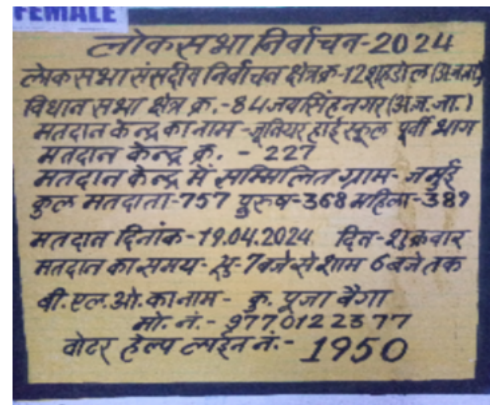 FEMALE
लोकसभा निर्वाचन-2024
लोकसभा संसदीय निर्वाचन क्षेत्र क्र-12 शहडोल (अ.ज.जा.)
विधान सभा क्षेत्र क्र.-84 जयसिंहनगर (अ.ज.जा.)
मतदान केन्द्र का नाम-जूनियर हाई स्कूल पूर्वी भाग
मतदान केन्द्र क्र. - 227
मतदान केन्द्र में सम्मिलित ग्राम- जमुई
कुल मतदाता-757 पुरुष-368 महिला-389
मतदान दिनांक-19.04.2024 दिन-शुक्रवार
मतदान का समय-सु-7 बजे से शाम 6 बजे तक
बी.एल.ओ. का नाम- कु. पूजा बैगा
मो. नं.- 9770122377
वोटर हेल्प लाईन नं.- 1950